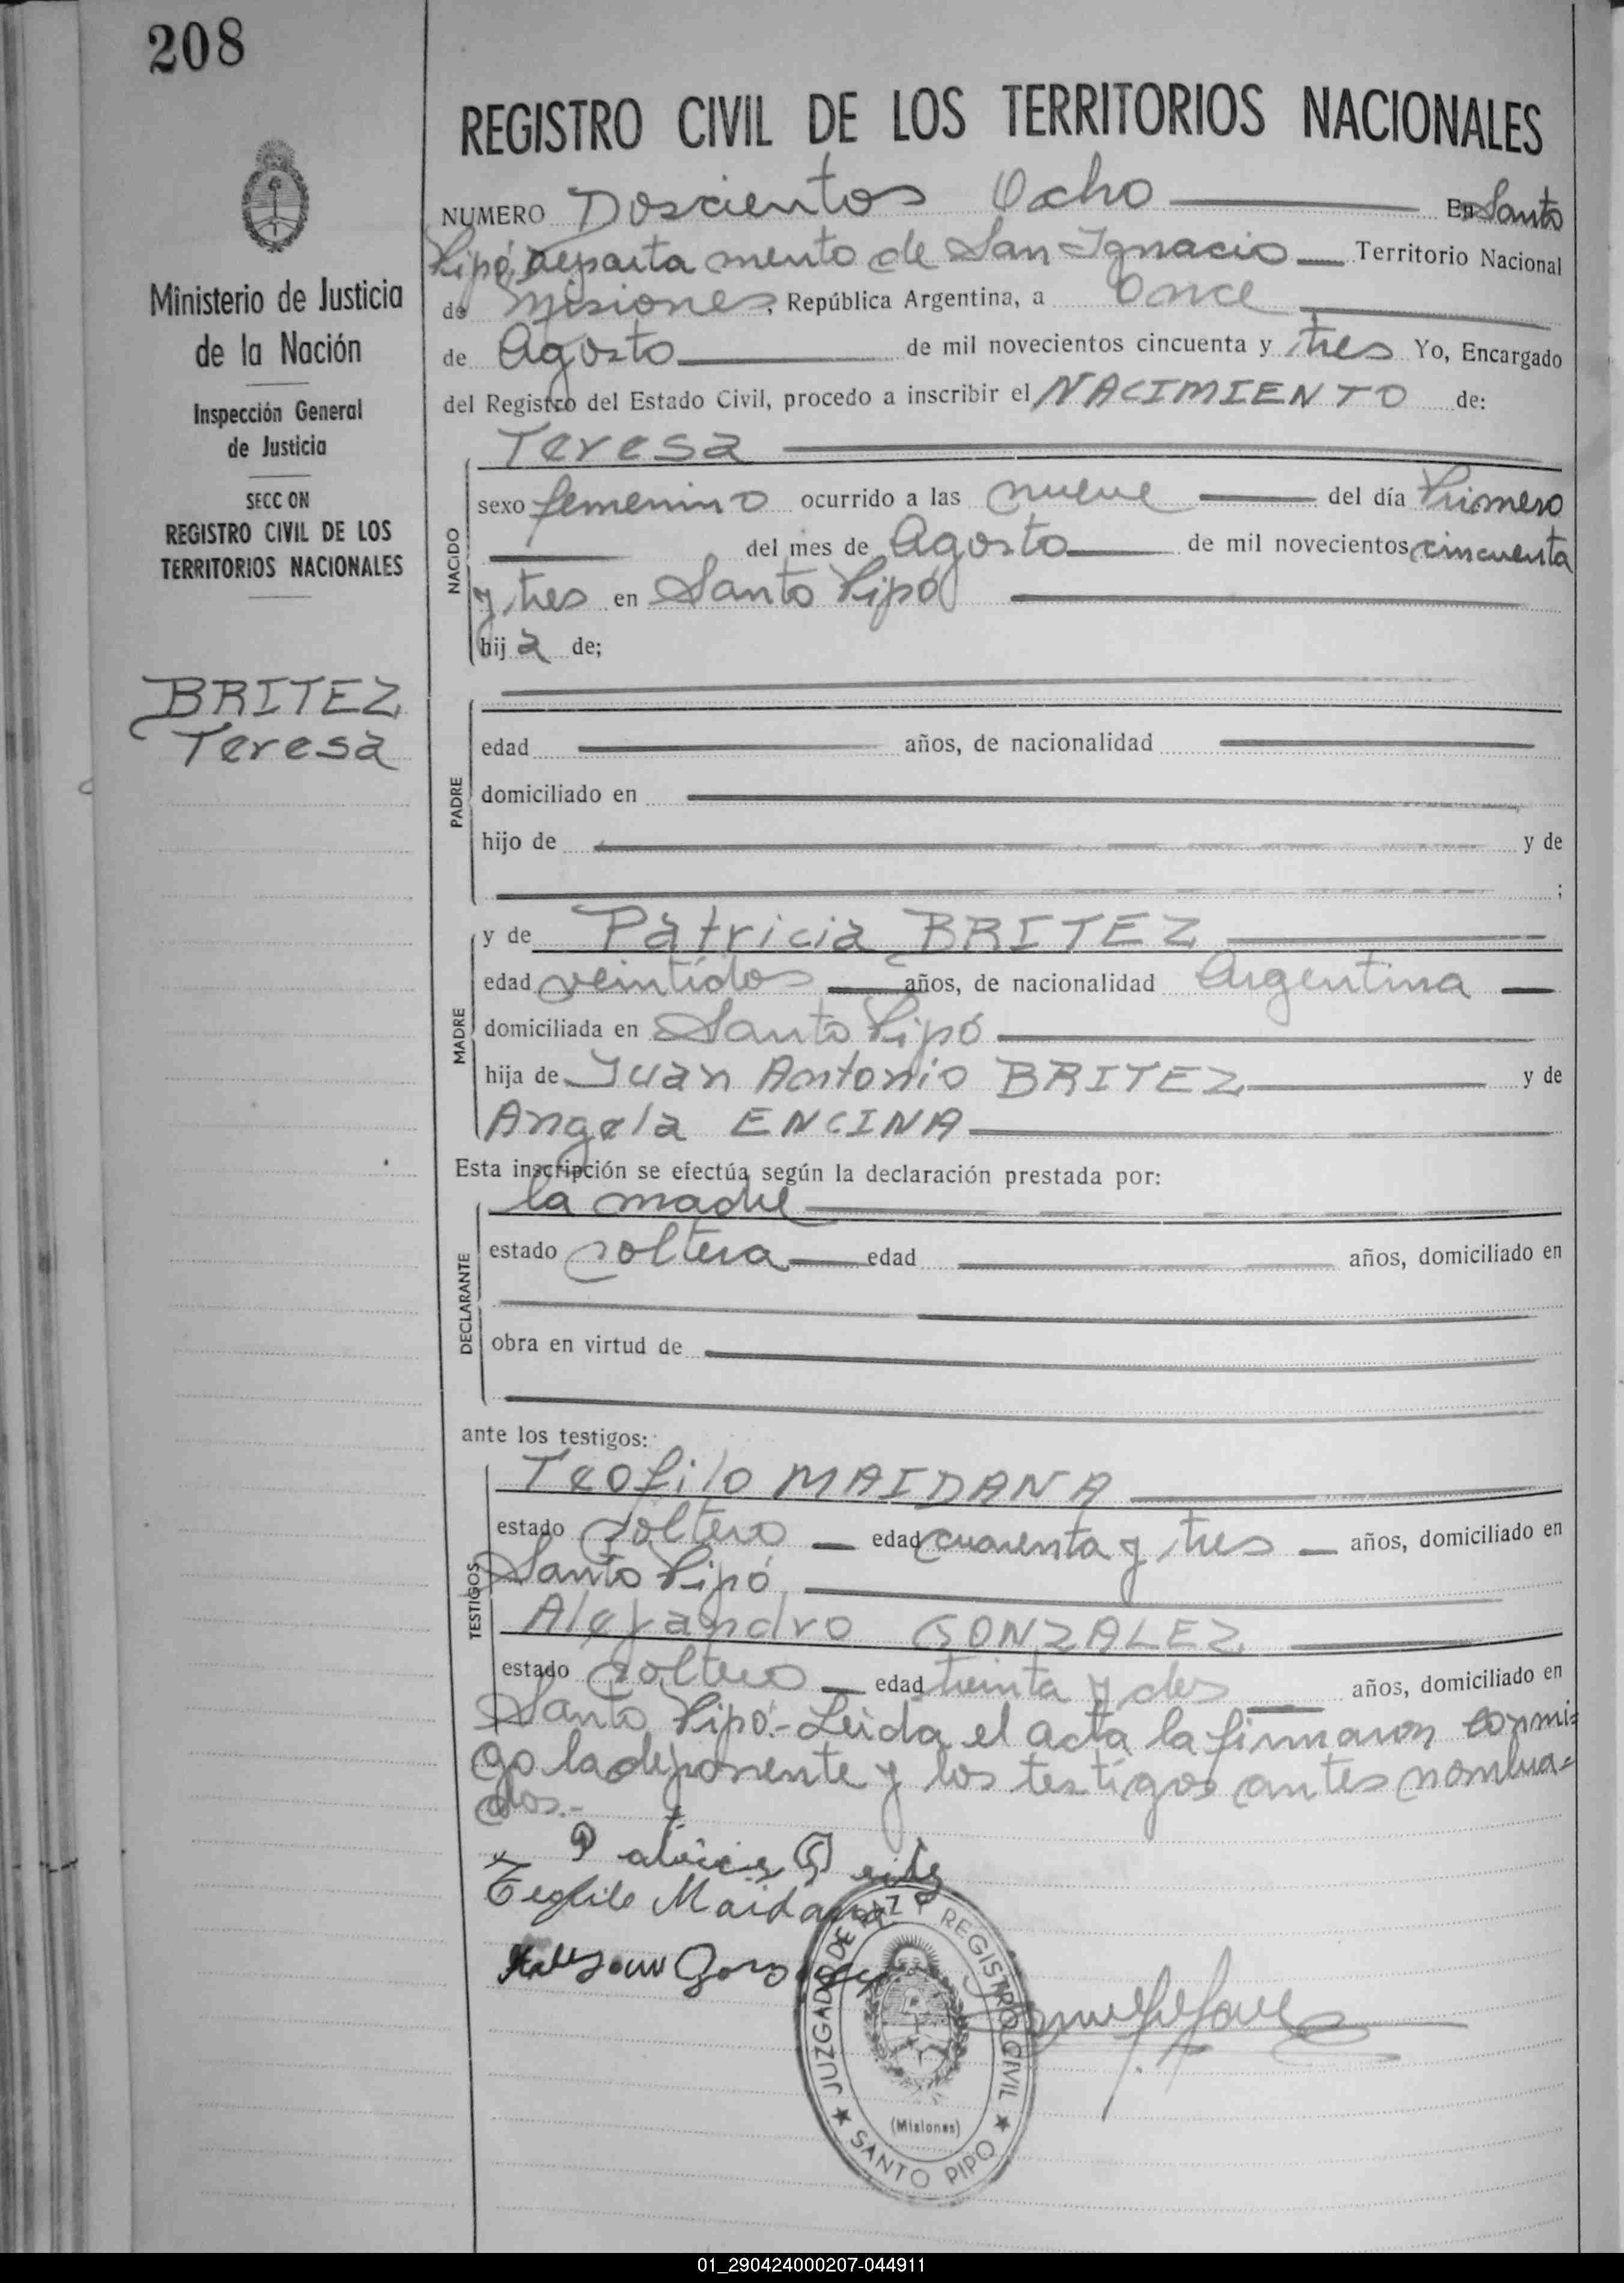 208
Ministerio de Justicia
de la Nación
Inspección General
de Justicia
SECC ON
REGISTRO CIVIL DE LOS
TERRITORIOS NACIONALES
BRITEZ
Teresa
REGISTRO CIVIL DE LOS TERRITORIOS NACIONALES
NUMERO Doscientos Ocho En Santo
Pipó, departamento de San Ignacio Territorio Nacional
de Misiones, República Argentina, a Once
de Agosto de mil novecientos cincuenta y tres Yo, Encargado
del Registro del Estado Civil, procedo a inscribir el NACIMIENTO de:
Teresa
NACIDO
sexo femenino ocurrido a las nueve del día Primero
del mes de Agosto de mil novecientos cincuenta
y tres en Santo Pipó
hija de;
PADRE
edad años, de nacionalidad
domiciliado en
hijo de y de
;
MADRE
y de Patricia BRITEZ
edad veintidos años, de nacionalidad Argentina
domiciliada en Santo Pipó
hija de Juan Antonio BRITEZ y de
Angela ENCINA
Esta inscripción se efectúa según la declaración prestada por:
DECLARANTE
la madre
estado soltera edad años, domiciliado en
obra en virtud de
ante los testigos:
TESTIGOS
Teofilo MAIDANA
estado soltero edad cuarenta y tres años, domiciliado en
Santo Pipó
Alejandro GONZALEZ
estado soltero edad treinta y dos años, domiciliado en
Santo Pipó.- Leida el acta la firmaron conmi=
go la deponente y los testigos antes nombra=
dos.-
Teofilo Maidana
JUZGADO DE PAZ Y REGISTRO CIVIL
(Misiones)
★ SANTO PIPO ★
01_290424000207-044911